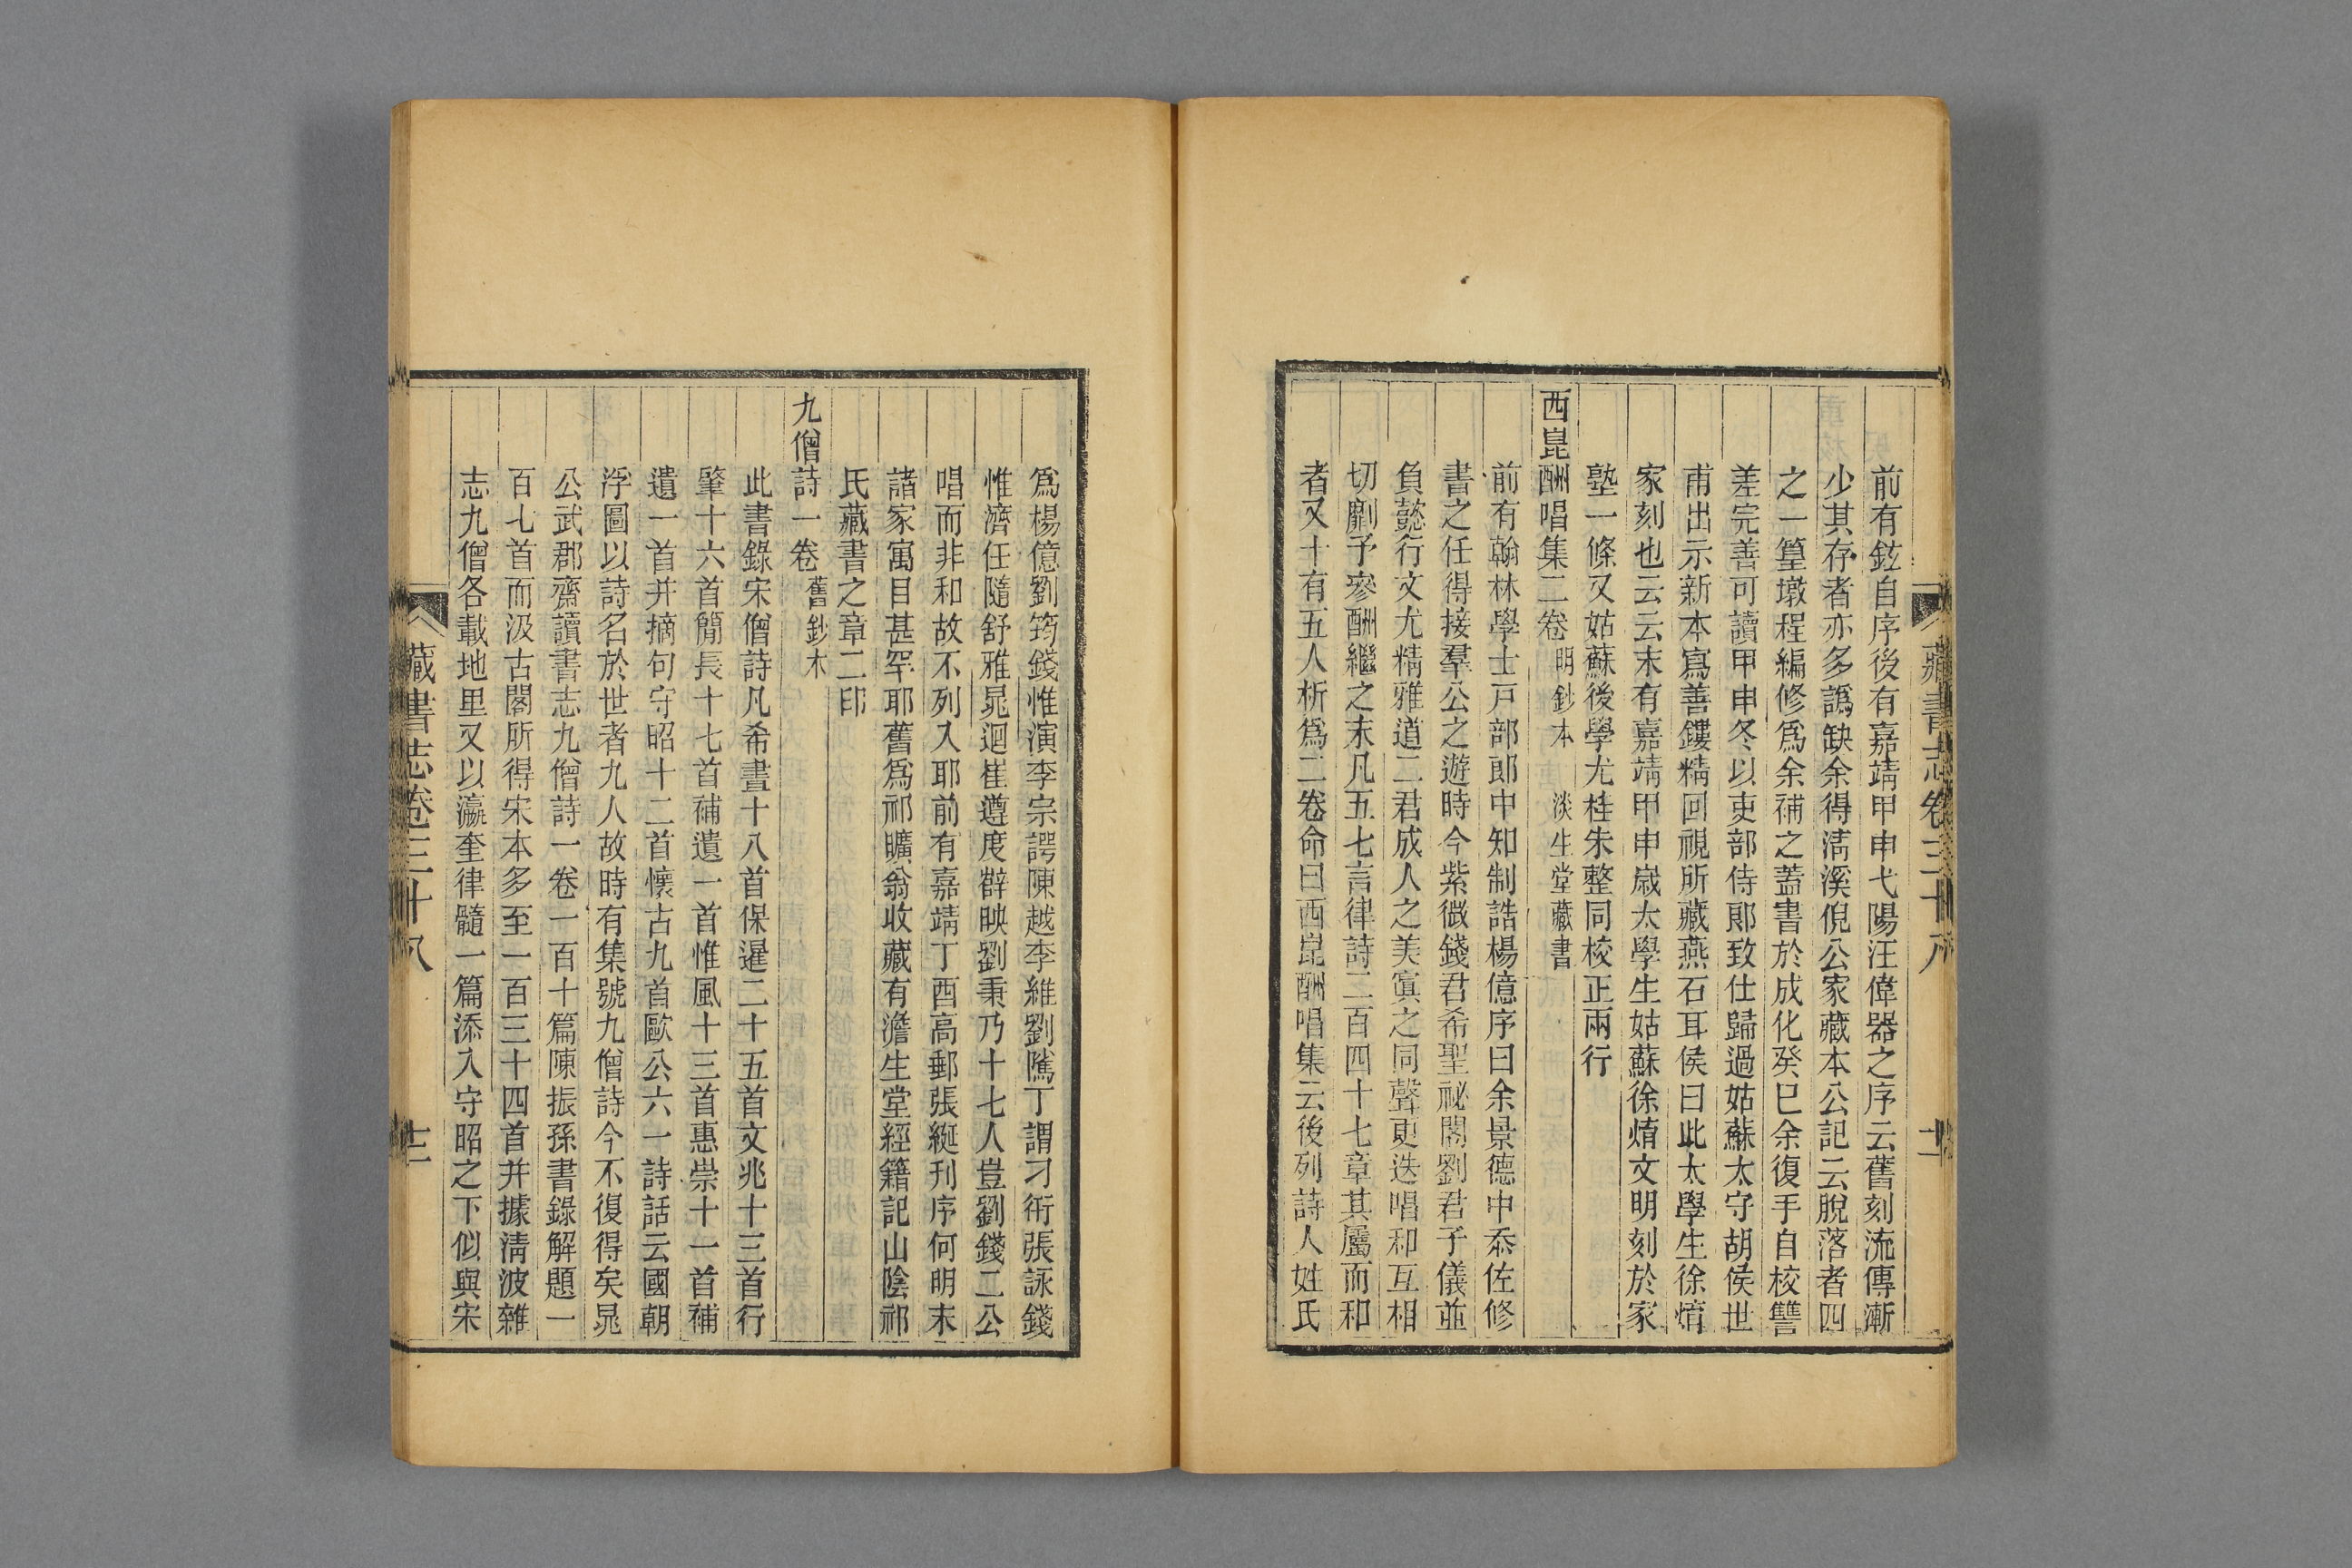 前有鉉自序後有嘉靖甲申弋陽汪偉器之序云舊刻流傳漸
少其存者亦多譌缺余得淸溪倪公家藏本公記云脫落者四
之一篁墩程編修爲余補之蓋書於成化癸巳余復手自校讐
差完善可讀甲申冬以吏部侍郞致仕歸過姑蘇太守胡侯世
甫出示新本寫善鏤精回視所藏燕石耳侯曰此太學生徐焴
家刻也云云末有嘉靖甲申歲太學生姑蘇徐焴文明刻於家
塾一條又姑蘇後學尤桂朱整同校正兩行
西崑酬唱集二卷 明鈔本 淡生堂藏書
前有翰林學士戸部郎中知制誥楊億序曰余景德中忝佐修
書之任得接羣公之遊時今紫微錢君希聖祕閣劉君子儀並
負懿行文尤精雅道二君成人之美寘之同聲更迭唱和互相
切劘予參酬繼之末凡五七言律詩二百四十七章其屬而和
者又十有五人析爲二卷命曰西崑酬唱集云後列詩人姓氏
藏書志卷三十八
十一
爲楊億劉筠錢惟演李宗諤陳越李維劉隲丁謂刁衎張詠錢
惟濟任隨舒雅晁迥崔遵度薛映劉秉乃十七人豈劉錢二公
唱而非和故不列入耶前有嘉靖丁酉高郵張綖刊序何明末
諸家寓目甚罕耶舊爲祁曠翁收藏有澹生堂經籍記山陰祁
氏藏書之章二印
九僧詩一卷 舊鈔本
此書錄宋僧詩凡希晝十八首保暹二十五首文兆十三首行
肇十六首簡長十七首補遺一首惟鳳十三首惠崇十一首補
遺一首并摘句宇昭十二首懷古九首歐公六一詩話云國朝
浮圖以詩名於世者九人故時有集號九僧詩今不復得矣晁
公武郡齋讀書志九僧詩一卷一百十篇陳振孫書錄解題一
百七首而汲古閣所得宋本多至一百三十四首并據淸波雜
志九僧各載地里又以瀛奎律髓一篇添入守昭之下似與宋
藏書志卷三十八
十二